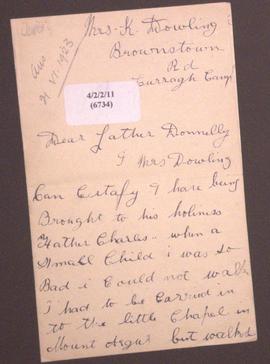 Mrs. K. Dowling
Brownstown
Rd
Curragh Camp
Ans
21.VI.1923
4/2/2/11
(6734)
Dear Father Donnelly
I Mrs Dowling
Can Certafy I have being
Brought to his holiness
Father Charles - when a
Small Child i was so
Bad i Could not walk
I had to be Carried in
to the little Chapel in
Mount Argus but walked